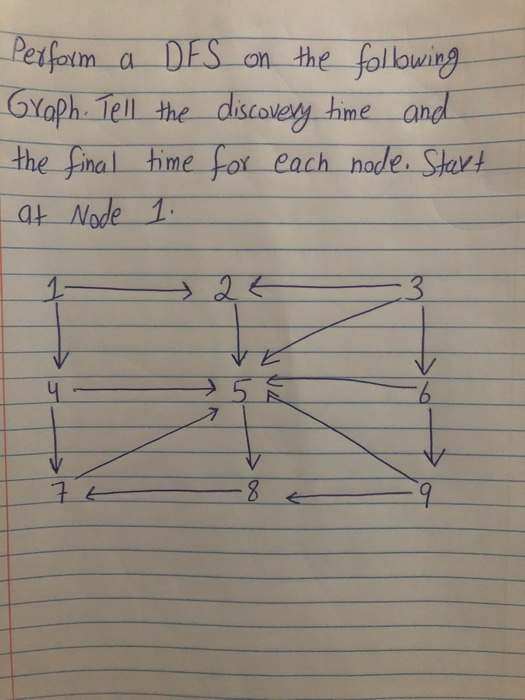 Perform a DFS on the following
Graph. Tell the discovery time and
the final time for each node. Start
at Node 1.
1 2 3
4 5 6
7 8 9